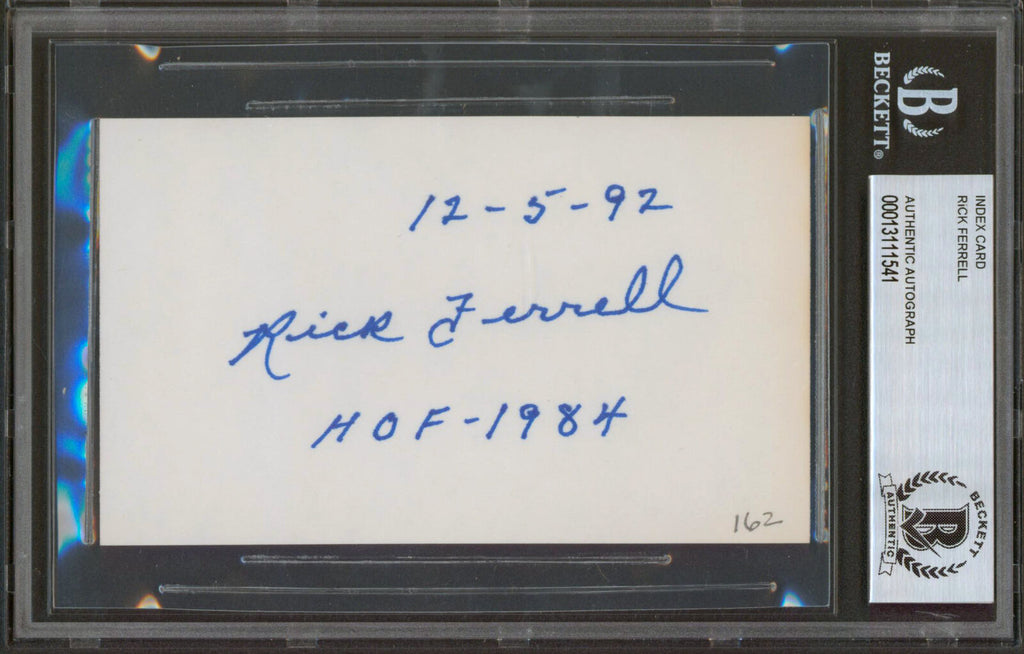 12-5-92
Rick Ferrell
HOF-1984
162
BECKETT®
B
INDEX CARD
RICK FERRELL
AUTHENTIC AUTOGRAPH
00013111541
BECKETT
B
AUTHENTIC